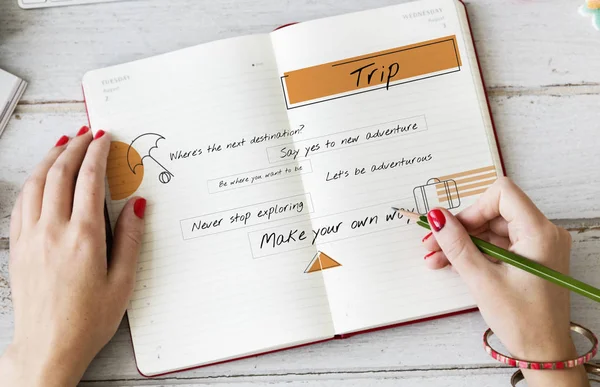 TUESDAY
August
2
WEDNESDAY
August
3
Trip
Where's the next destination?
Say yes to new adventure
Be where you want to be
Let's be adventurous
Never stop exploring
Make your own way